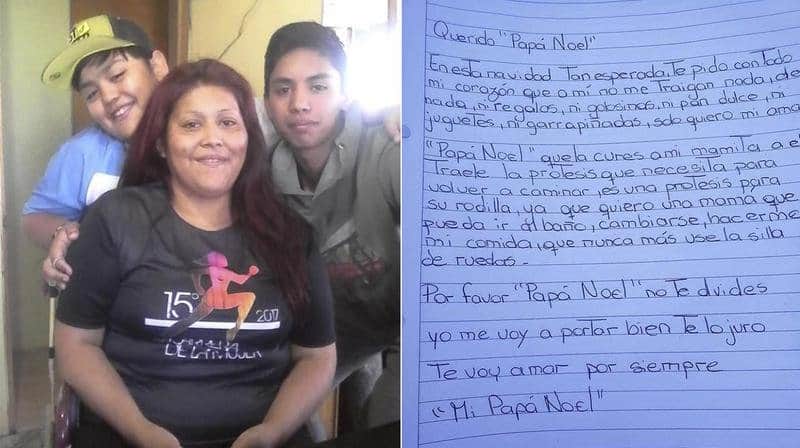 15°
2017
Querido "Papá Noel"
En esta navidad Tan esperada, Te pido con todo
mi corazón que a mí no me Traigan nada, de
nada, ni regalos, ni golosinas, ni pan dulce, ni
juguetes, ni garrapiñadas, solo quiero mi ama
"Papá Noel" que la cures a mi mamita a el
Traele la protesis que necesita para
volver a caminar, es una protesis para
su rodilla, ya que quiero una mamá que
pueda ir al baño, cambiarse, hacerme
mi comida, que nunca más use la silla
de ruedas.
Por favor "Papá Noel" no Te dvides
yo me voy a portar bien Te lo juro
Te voy amar por siempre
"Mi Papá Noel"